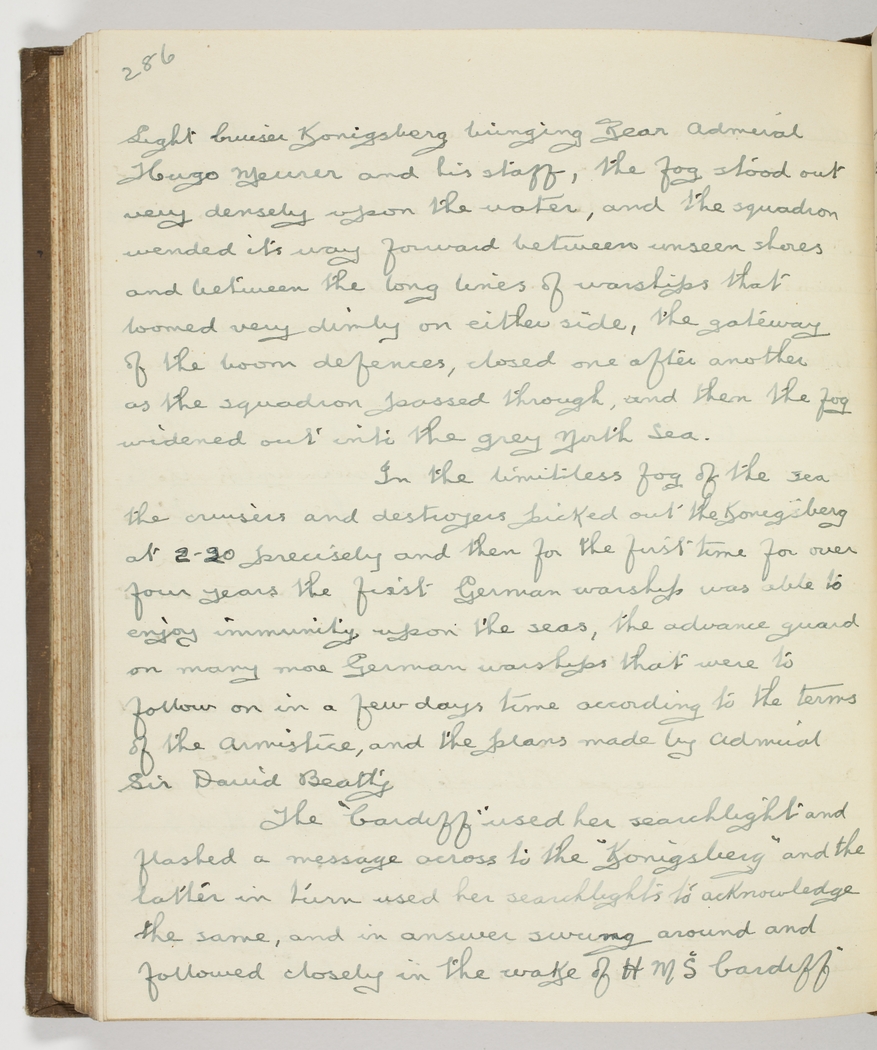 286
Light Cruiser Konigsberg bringing Rear Admiral
Hugo Meurer and his staff, the fog stood out
very densely upon the water, and the squadron
wended its way forward between unseen shores
and between the long lines of warships that
loomed very dimly on either side, the gateway
of the boom defences, closed one after another
as the squadron passed through, and then the fog
widened out into the grey North Sea.
In the limitless fog of the sea
the cruisers and destroyers picked out the Konigsberg
at 2-20 precisely and then for the first time for over
four years the first German warship was able to
enjoy immunity upon the seas, the advance guard
on many more German warships that were to
follow on in a few days time according to the terms
of the Armistice, and the plans made by Admiral
Sir David Beatty
The "Cardiff" used her searchlight and
flashed a message across to the "Konigsberg" and the
latter in turn used her searchlights to acknowledge
the same, and in answer swung around and
followed closely in the wake of H M S Cardiff"